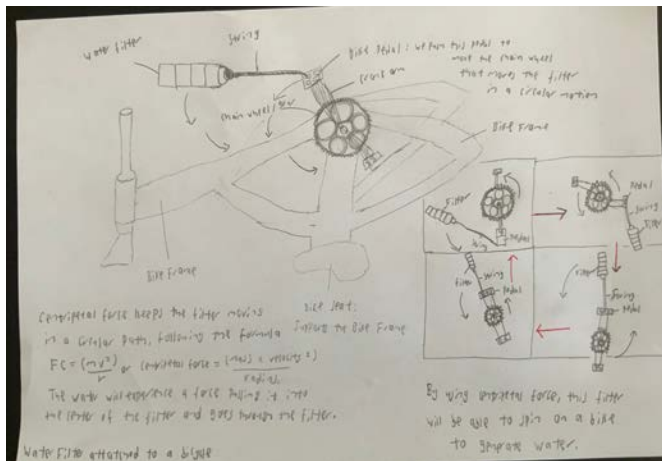 Water filter
String
Bike Pedal: we turn this Pedal to
move the chain wheel
that moves the filter
in a circular motion
crank arm
chain wheel/gear
Bike Frame
Bike Frame
Bike Seat:
Supports the Bike Frame
Filter
String
Pedal
Pedal
String
Filter
String
Pedal
filter
filter
String
Pedal
Centripetal force keeps the filter moving
in a circular path, following the formula
FC = (mv²)/r or centripetal force = (mass × velocity²)/radius
The water will experience a force pulling it into
the center of the filter and goes through the filter.
By using centripetal force, this filter
will be able to spin on a bike
to generate water.
Water Filter attatched to a bicycle